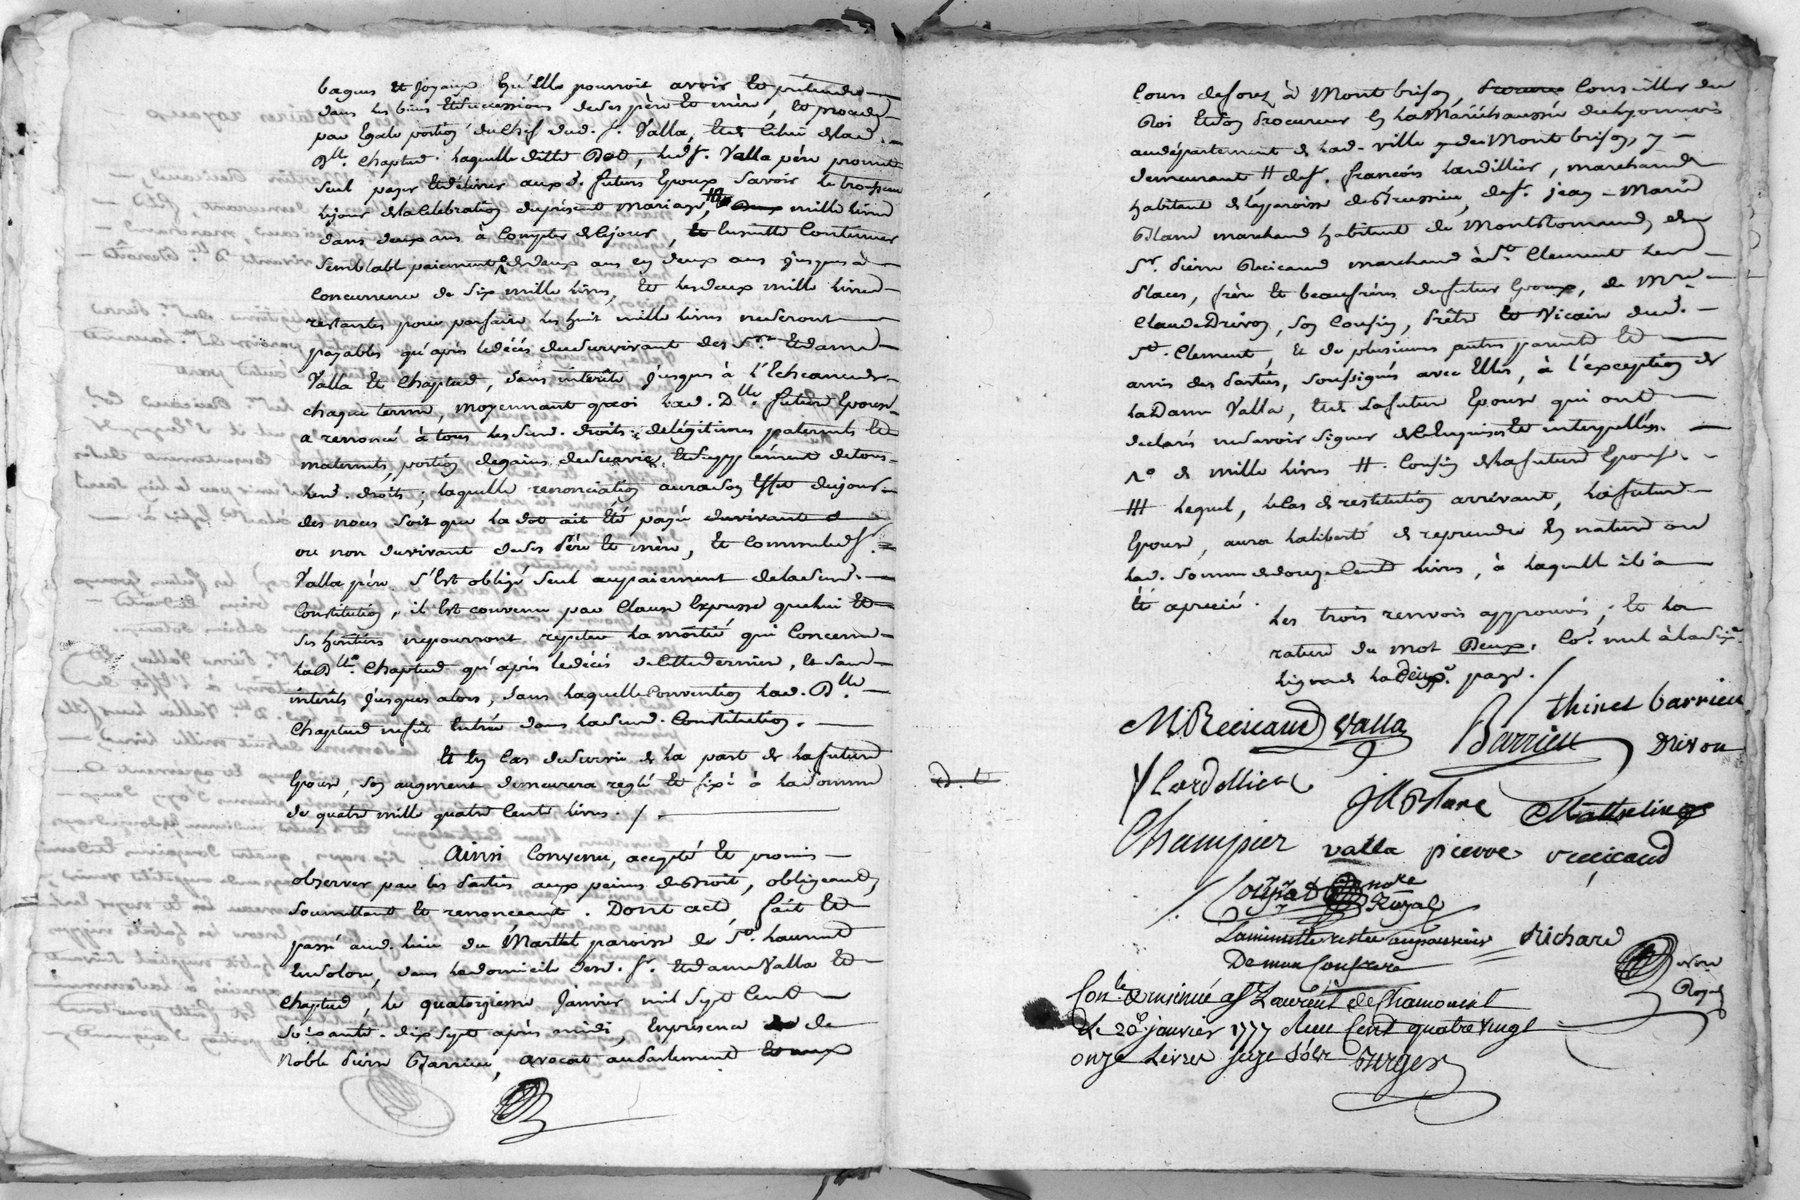 bagues et joyaux qu'elle pourroit avoir et prétendre
dans les biens et successions de ses père et mère, et proceder
par egale portion du chef dud. sr. Valla, et de celui de lad.
Dlle. Chaptud. laquelle ditte Dot, led. sr. Valla père promet
seul payer et délivrer auxd. futurs Epoux savoir le trousseau
le jour de la celebration du présent mariage, mille livres
dans deux ans à compter de ce jour, et ensuitte continuer
semblable paiement de deux ans en deux ans jusques à
concurrence de six mille livres, et les deux mille livres
restantes pour parfaire les huit mille livres ne seront
payables qu'après le décés du survivant des Srs. et dame
Valla et Chaptud, sans interêts jusques à l'Echeance de
chaque terme, moyennant quoi lad. Dlle. future Epouse
a renoncé à tous lesd. droits de légitimes paternels et
maternels, portion de gains de survie, et supplément de tous
lesd. droits. laquelle renonciation aura son effet du jour
des noces soit que la dot ait été payée du vivant
ou non du vivant de ses Père et mère, et comme led. sr.
Valla père s'est obligé seul au paiement de la susd.
Constitution, il est convenu par clause Expresse que lui et
ses héritiers ne pourront repeter la moitié qui concerne
la Dlle. Chaptud qu'après le décès de cette dernière, et sans
interêts jusques alors, sans laquelle convention lad. Dlle.
Chaptud ne fut entrée dans la susd. Constitution.
Et en cas de survie de la part de la future
Epouse, son augment demeurera reglé et fixé à la somme
de quatre mille quatre cent livres.
Ainsi Convenu, accepté et promis
observer par les Parties aux peines de Droit, obligeant,
soumettant et renonceant. Dont acte, fait et
passé aud. lieu du Marthel paroisse de St. Laurent
en Solon, dans le domicile desd. sr. et dame Valla et
Chaptud, le quatorzieme Janvier mil sept cent
soixante-dix sept après midi, En présence de
Noble Pierre Barrieu, avocat au Parlement et aux
Cours de forez à Montbrison, Conseiller du
Roi et son Procureur en la Maréchaussée du Lyonnois
au département de lad. ville de Montbrison, y
demeurant # de sr. françois Lardillier, marchand
habitant de la paroisse de Prussieu, de sr. jean-Marie
Blanc marchand habitant de Montromand, de
Sr. Pierre Recicaud marchand à St. Clement les
Places, frère et beaufrères du futur Epoux, de Mre.
Claude Drivon, son Cousin, Prêtre et Vicaire dud.
St. Clement, et de plusieurs autres parents et
amis des Parties, soussignés avec Elles, à l'exception de
la Dame Valla, et de la future Epouse qui ont
declaré ne savoir signer de ce enquises et interpellées.
de mille livres #. Cousin de la future Epouse.
lequel, le cas de restitution arrivant, la future
Epouse, aura la liberté de reprendre en nature ou
lad. somme de douze cent livres, à laquelle il a
été aprecié. Les trois renvois approuvés, et la
rature du mot Deux,
ligne de la deuxe. page.
M Recicaud Valla Barrieu thinet barrieu
Drivon
Y Lardillier JM Blanc Mathelin
Champier valla pierre recicaud
notre
Royal
La minutte restée au pouvoir Richard
De mon Confrere
nore
Royal
Conle. et insinué a St Laurent de Chamousset
Le 28 janvier 1777 Reçu Cent quatre vingt
onze Livres seize sols Berger